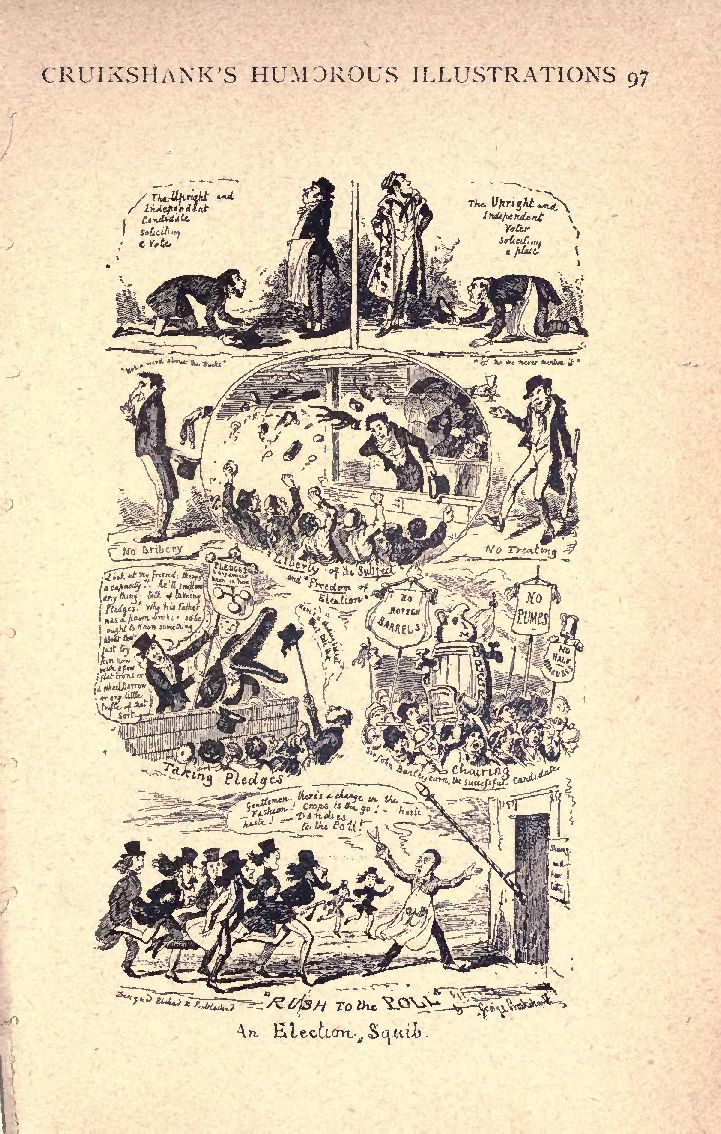 CRUIKSHANK'S HUMOROUS ILLUSTRATIONS 97
The Upright and
Independent
Candidate
Soliciting
a Vote
The Upright and
Independent
Voter
Soliciting
a place
"Not a word about the Ducks"
"we never mention it"
No Bribery
No Treating
Liberty of the Subject
and "Freedom of
Election"
Look at my friend; there's
a capacity! he'll swallow
any thing, talk of taking
Pledges. Why his father
was a pawn broker, so he
ought to know something
about them
just try
him now
with a few
flat irons or
a wheelbarrow
or any little
trifle of that
sort
PLEDGES
taken in here
Taking Pledges
NO
HOGSH
BARRELS
NO
PUMPS
NO
HALF
BEER
Sir John Barleycorn, the successful Candidate
Chairing
Gentlemen, there's a change in the
Fashion! Crops is the go! - haste
haste! - Dandies
to the Poll!
"RUSH To the POLL"
Designed Etched & Published
by George Cruikshank
An Election Squib.